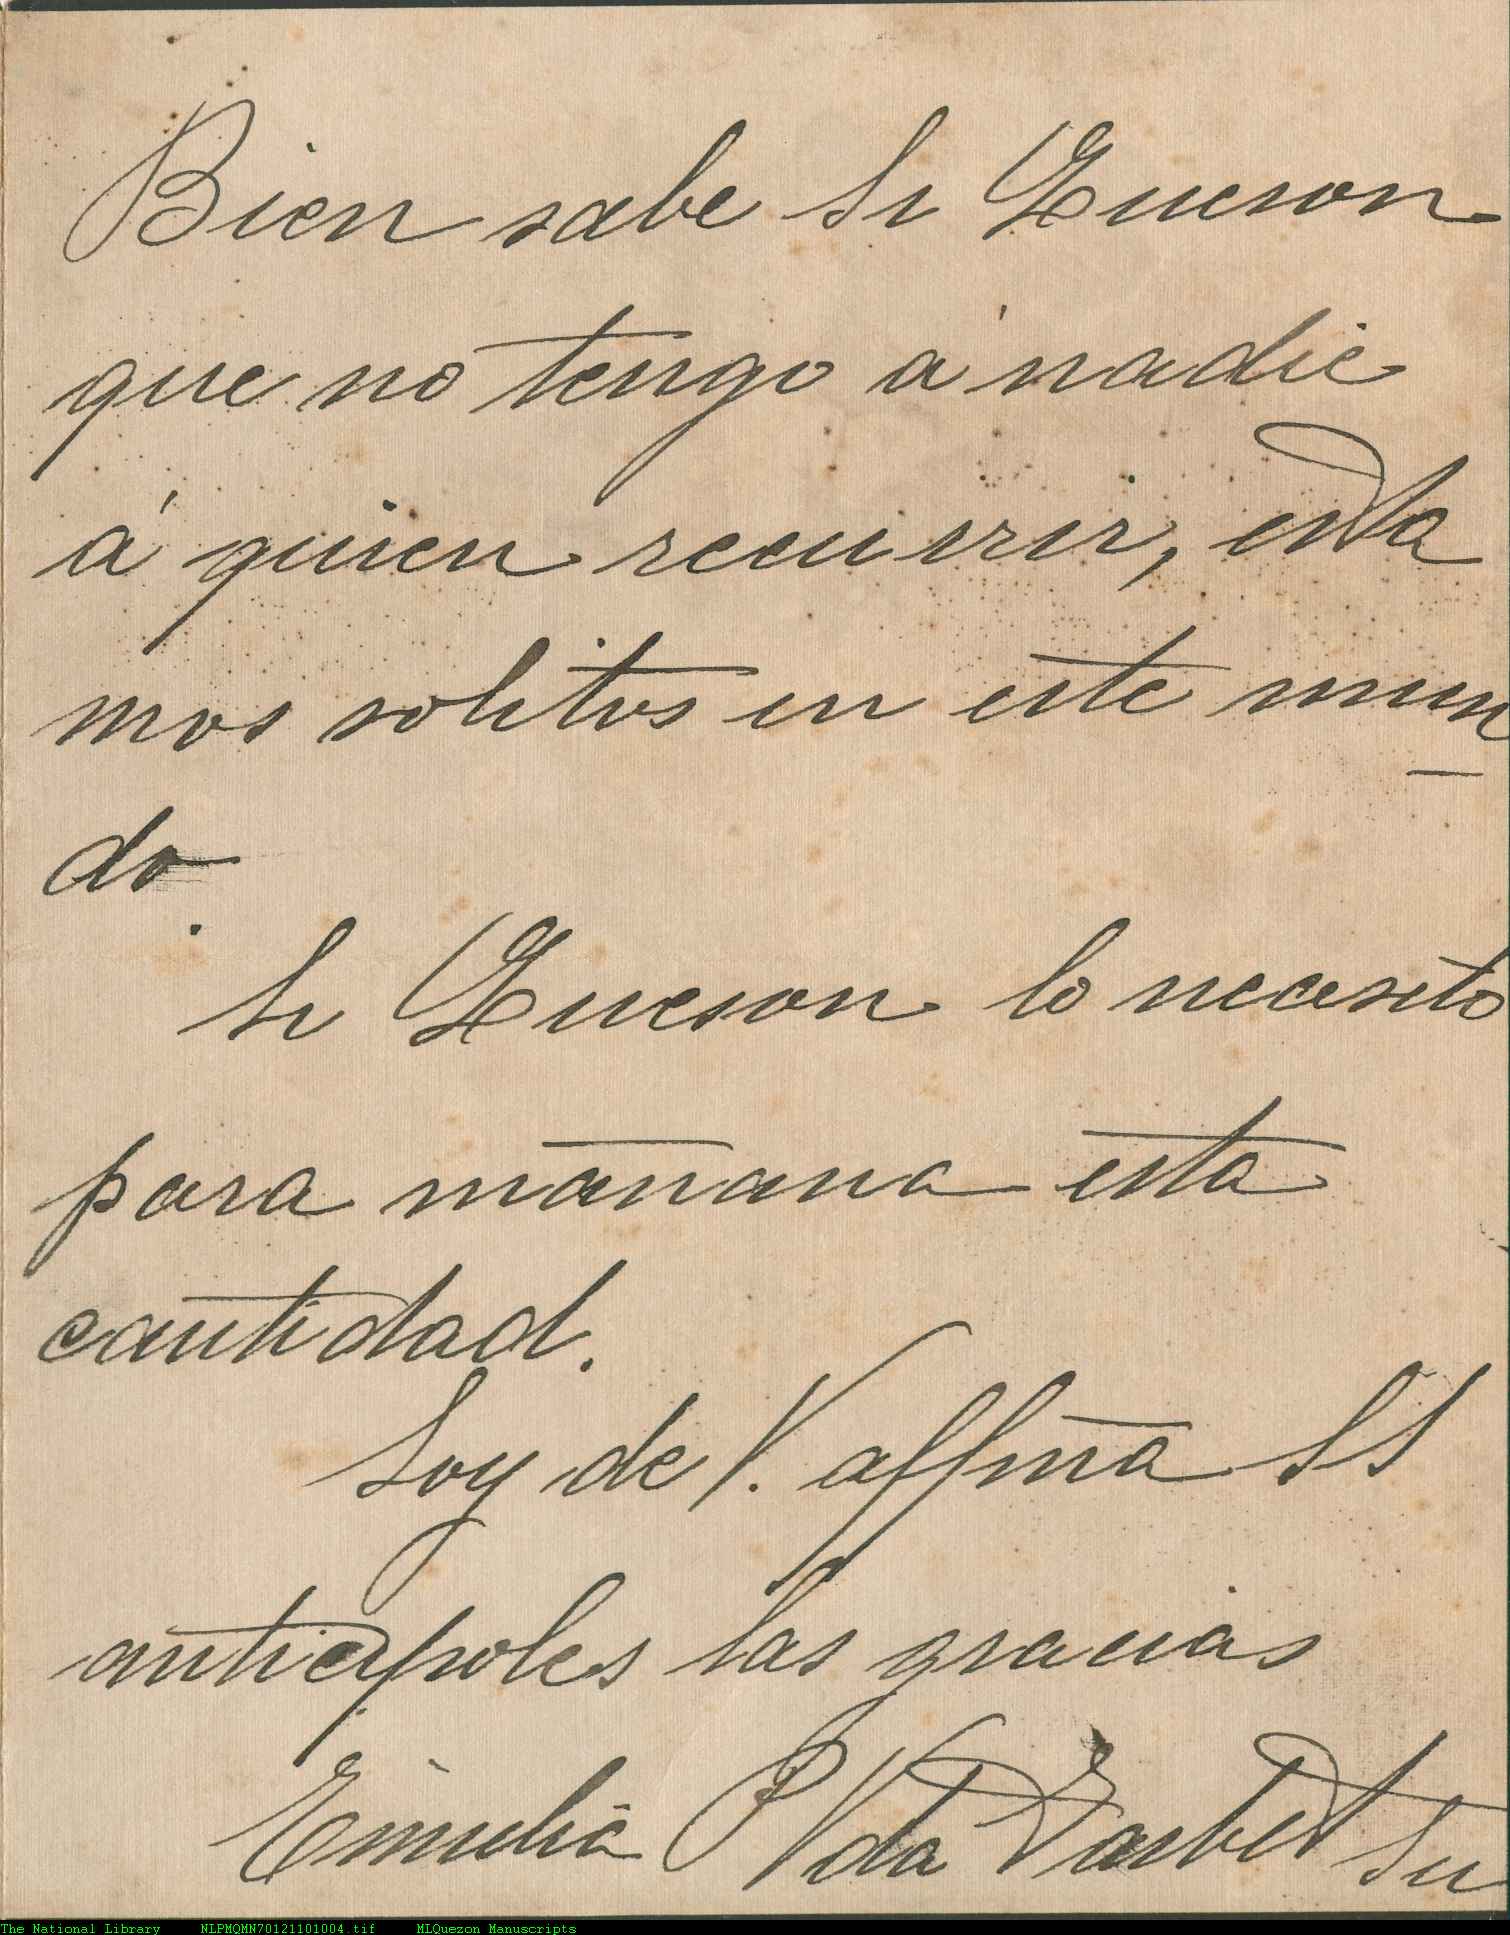 Bien sabe Sr Queson
que no tengo á nadie
á quien recurrir, esta
mos solitos en este mun
do.
Sr Queson lo necesito
para mañana esta
cantidad.
Soy de V. affma SS
anticipoles las gracias
Emilia P Vda
The National Library NLPMQMN70121101004.tif MLQuezon Manuscripts